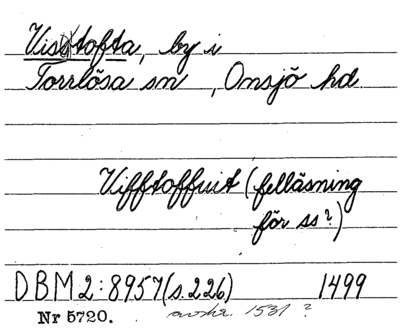 Visstofta, by i
Torrlösa sn , Onsjö hd
Vifftoffuit (felläsning
för ss?)
DBM 2:8957 (s. 226) 1499
Nr 5720. avskr. 1531 ?